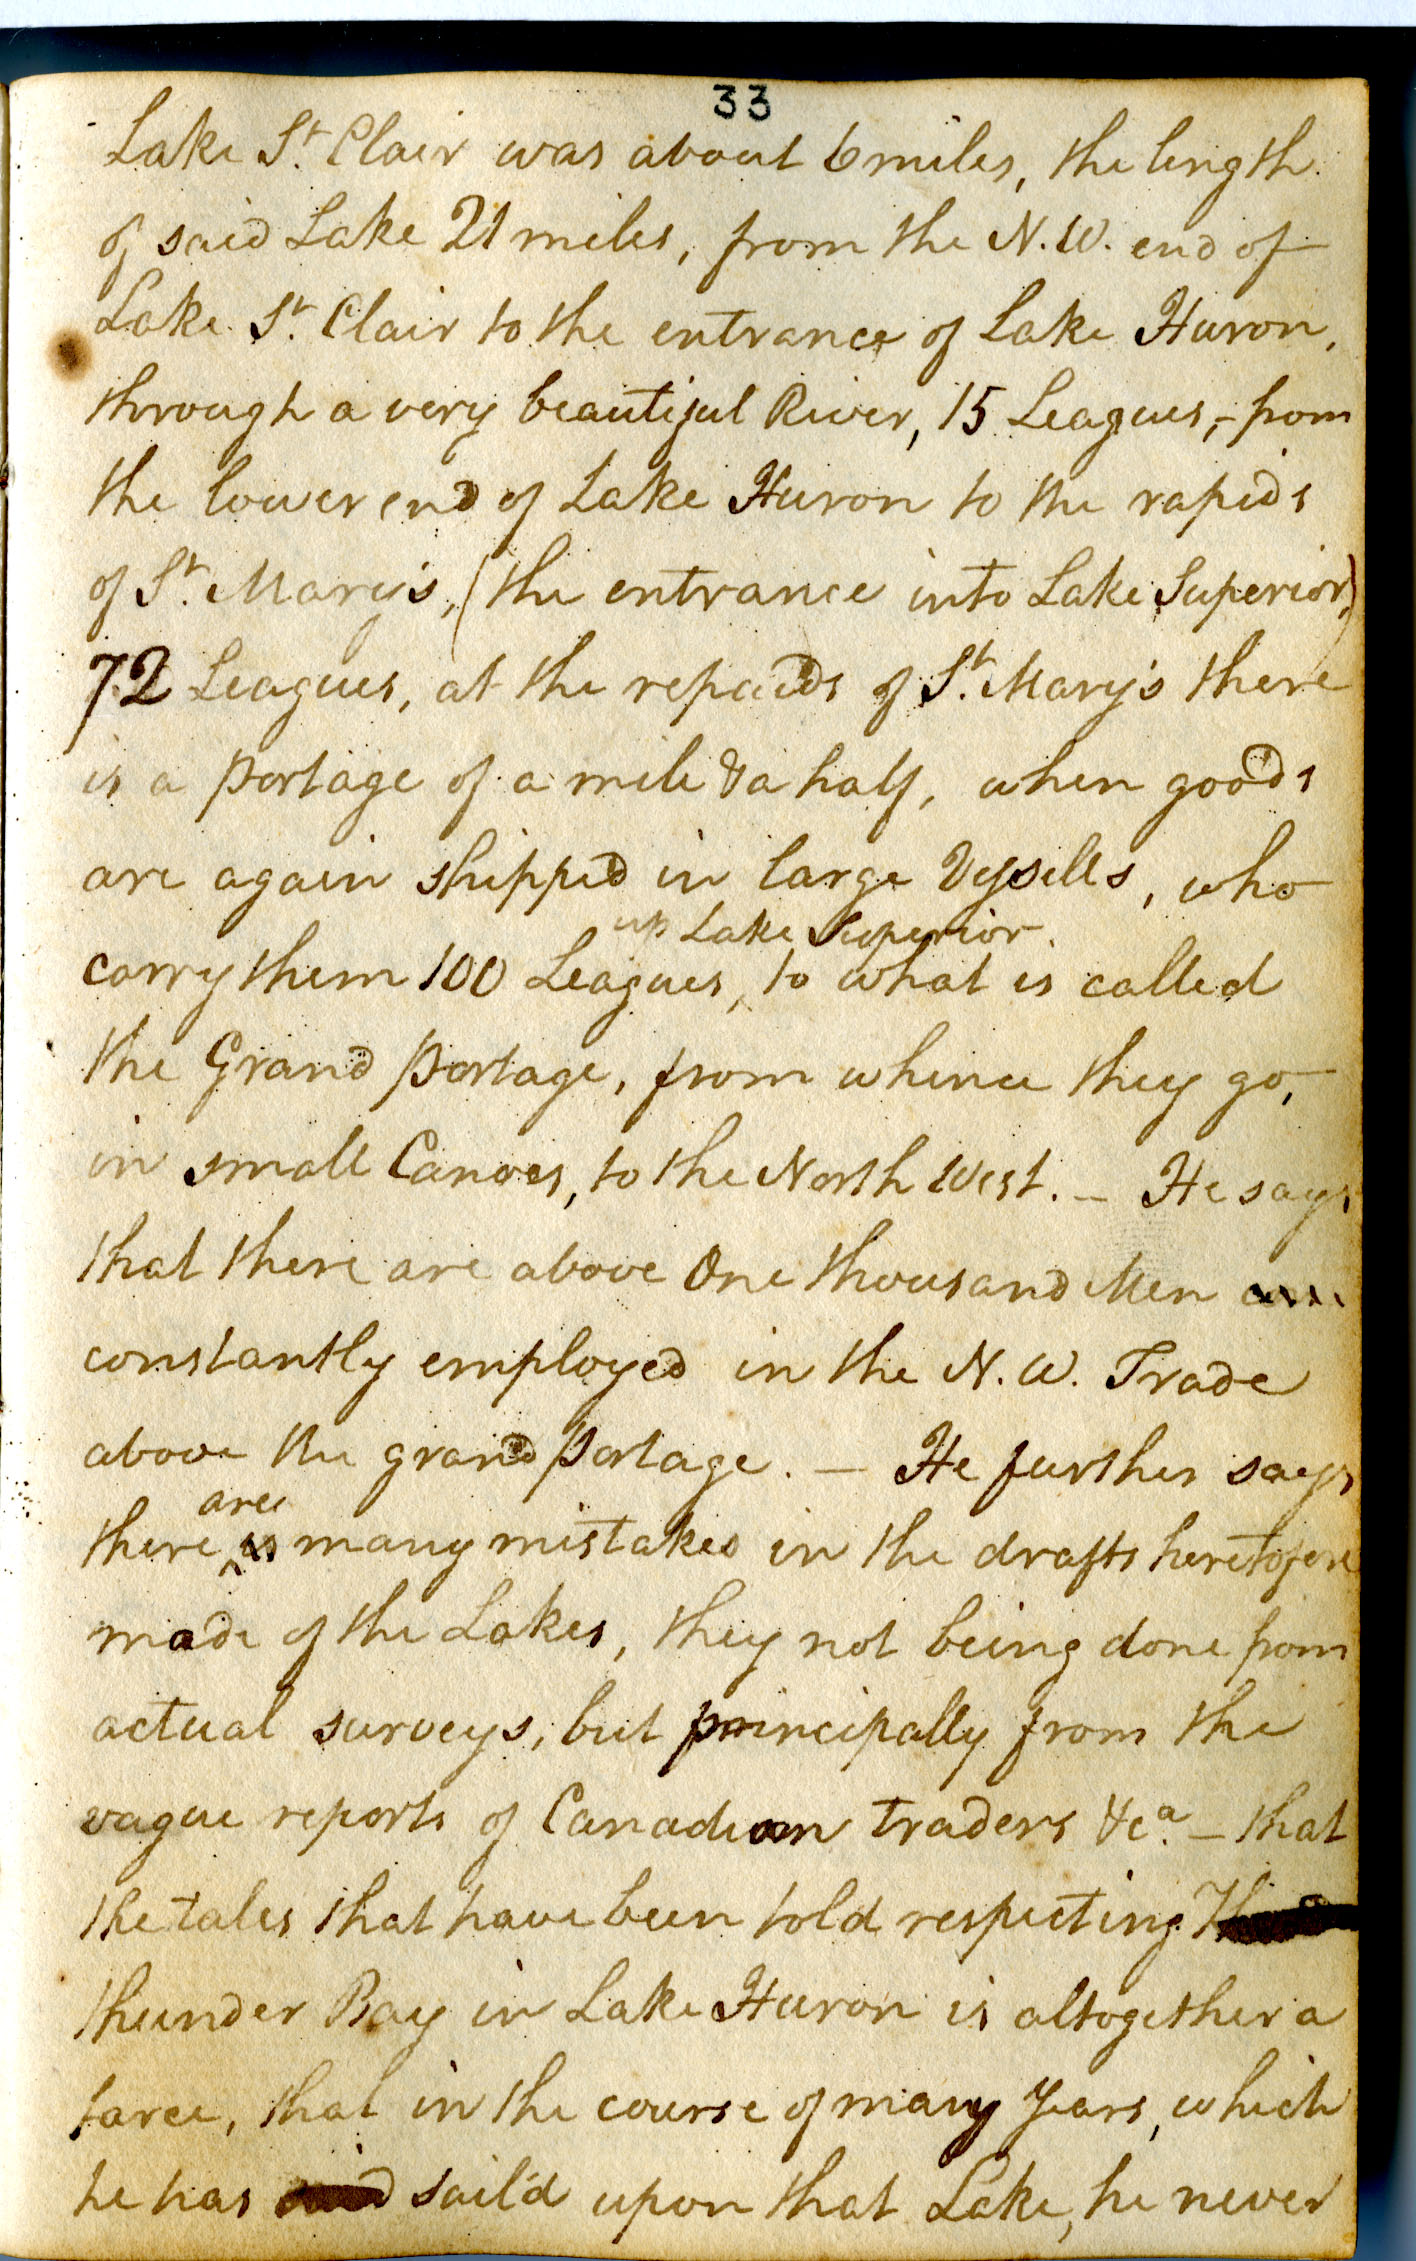 33
Lake St. Clair was about 6 miles, the length
of said Lake 21 miles, from the N.W. end of
Lake St. Clair to the entrance of Lake Huron,
through a very beautiful River, 15 Leagues, - from
the lower end of Lake Huron to the rapids
of St. Mary's, (the entrance into Lake Superior,)
72 Leagues, at the repaids of St. Mary's there
is a portage of a mile & a half, when goods
are again shipped in large Vessells, who
up Lake Superior.
carry them 100 Leagues, to what is called
the Grand portage, from whence they go,
in small Canoes, to the North West. _ He says
that there are above One thousand Men
constantly employed in the N. W. Trade
above the grand portage. _ He further says
are
there is many mistakes in the drafts heretofore
made of the Lakes, they not being done from
actual surveys, but principally from the
vague reports of Canadian traders &ca. _ that
the tales that have been told respecting
thunder Bay in Lake Huron is altogether a
farce, that in the course of many years, which
he has said sail'd upon that Lake, he never